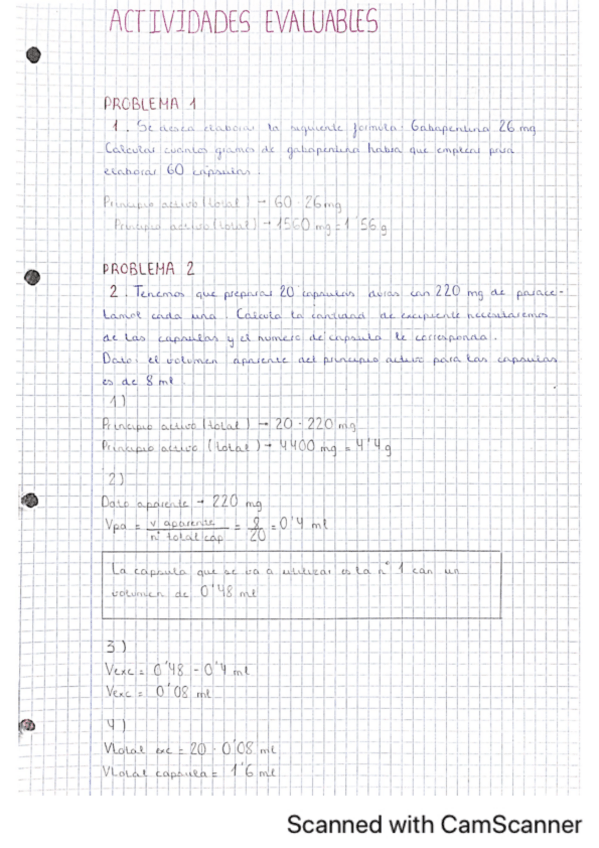 ACTIVIDADES EVALUABLES
PROBLEMA 1
1. Se desea elaborar la siguiente formula: Gabapentina 26 mg
Calcular cuantos gramos de gabapentina habra que emplear para
elaborar 60 capsulas.
Principio activo (total) → 60 · 26 mg
Principio activo (total) → 1560 mg = 1'56 g
PROBLEMA 2
2. Tenemos que preparar 20 capsulas duras con 220 mg de parace-
tamol cada una. Calcula la cantidad de excipiente necesitaremos
de las capsulas y el numero de capsula le corresponda.
Dato: el volumen aparente del principio activo para las capsulas
es de 8 ml
1)
Principio activo (total) → 20 · 220 mg
Principio activo (total) → 4400 mg = 4'4g
2)
Dato aparente → 220 mg
Vpa = v aparente / nº total cap = 8/20 = 0'4 ml
La capsula que se va a utilizar es la nº 1 con un
volumen de 0'48 ml
3)
Vexc = 0'48 - 0'4 ml
Vexc = 0'08 ml
4)
Vtotal exc = 20 · 0'08 ml
Vtotal capsula = 1'6 ml
Scanned with CamScanner